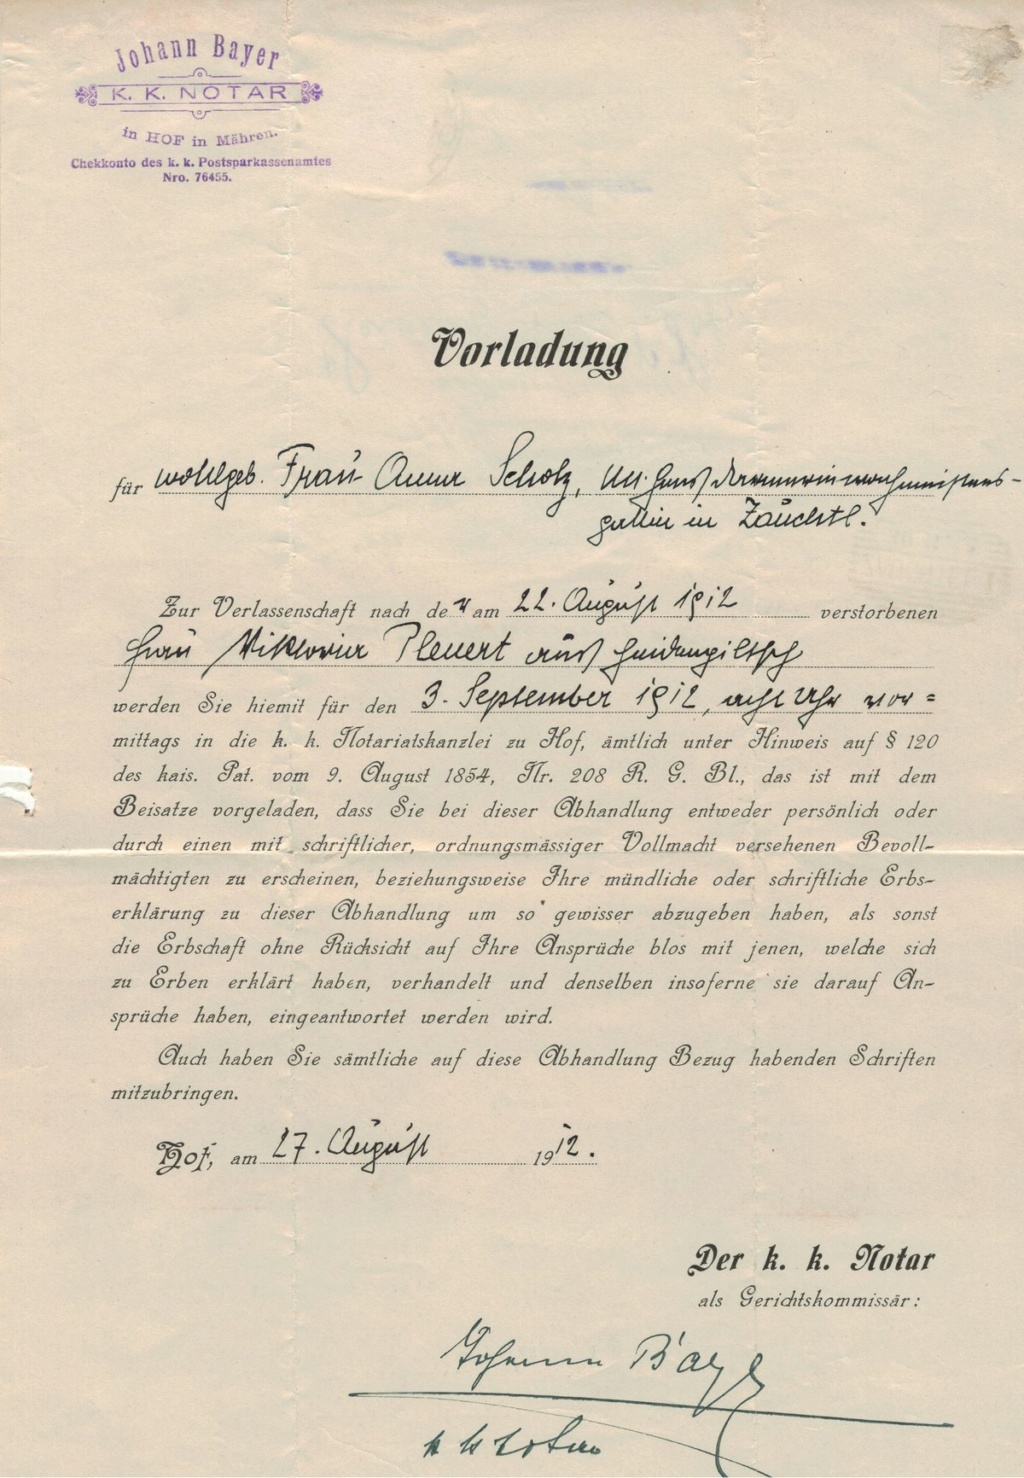 Johann Bayer
K. K. NOTAR
in HOF in Mähren.
Chekkonto des k. k. Postsparkassenamtes
Nro. 76455.
Vorladung
für wohlgeb. Frau Anna Scholz,
gattin in Zauchtl.
Zur Verlassenschaft nach der am 22. August 1912 verstorbenen
Frau Viktoria Plenert aus Heidenpiltsch
werden Sie hiemit für den 3. September 1912, acht Uhr vor=
mittags in die k. k. Notariatskanzlei zu Hof, ämtlich unter Hinweis auf § 120
des kais. Pat. vom 9. August 1854, Nr. 208 R. G. Bl., das ist mit dem
Beisatze vorgeladen, dass Sie bei dieser Abhandlung entweder persönlich oder
durch einen mit schriftlicher, ordnungsmässiger Vollmacht versehenen Bevoll-
mächtigten zu erscheinen, beziehungsweise Ihre mündliche oder schriftliche Erbs-
erklärung zu dieser Abhandlung um so gewisser abzugeben haben, als sonst
die Erbschaft ohne Rücksicht auf Ihre Ansprüche blos mit jenen, welche sich
zu Erben erklärt haben, verhandelt und denselben insoferne sie darauf An-
sprüche haben, eingeantwortet werden wird.
Auch haben Sie sämtliche auf diese Abhandlung Bezug habenden Schriften
mitzubringen.
Hof, am 27. August 1912.
Der k. k. Notar
als Gerichtskommissär:
Johann Bayer
k k Notar